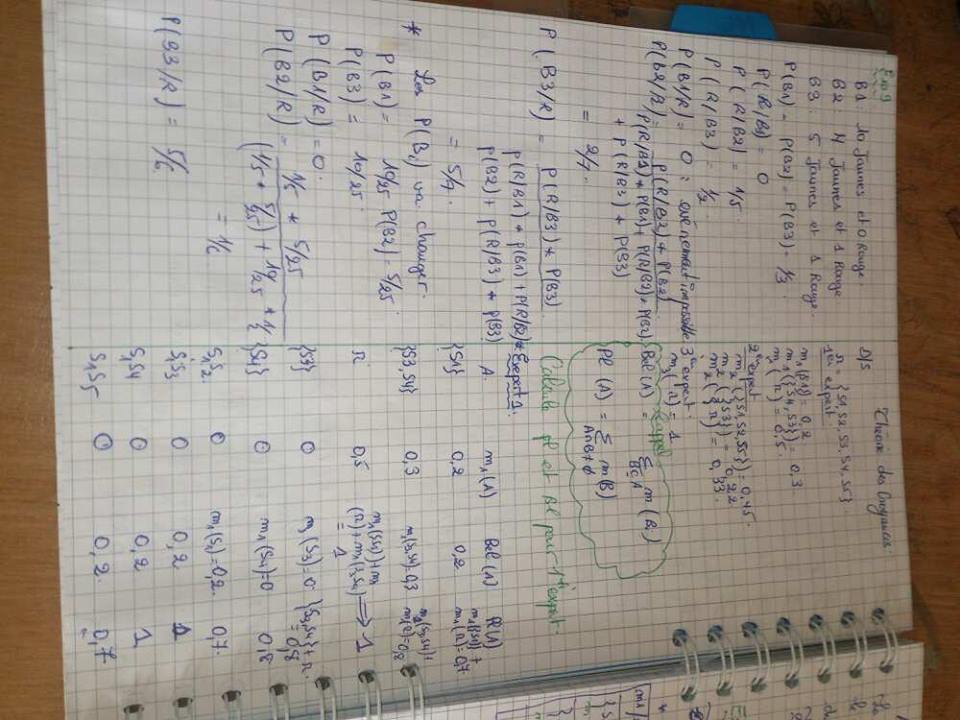 Exo 9
B1: 10 Jaunes et 0 Rouge.
B2: 4 Jaunes et 1 Rouge
B3: 5 Jaunes et 1 Rouge.
P(B1) = P(B2) = P(B3) = 1/3
P(R/B1) = 0
P(R/B2) = 1/5
P(R/B3) = 1/2
P(B1/R) = 0 : evénement impossible
P(B2/R) = P(R/B2) * P(B2)
P(R/B1) * P(B1) + P(R/B2) * P(B2)
+ P(R/B3) + P(B3)
= 2/7.
P(B3/R) = P(R/B3) * P(B3)
P(R/B1) * p(B1) + P(R/B2) *
p(B2) + p(R/B3) * p(B3)
= 5/7.
* Les P(Bi) va changer.
P(B1) = 10/25 P(B2) = 5/25
P(B3) = 10/25
P(B1/R) = 0.
P(B2/R) = 1/5 * 5/25
(1/5 * 5/25) + 10/25 * 1/2
= 1/6
P(B3/R) = 5/6
Théorie des Croyances
D/S
Ω = {S1, S2, S3, S4, S5}
1er expert
m1({S1}) = 0,2
m1({S4, S3}) = 0,3
m1(Ω) = 0,5
2e expert
m2({S1, S2, S5}) = 0,45
m2({S3}) = 0,22
m2({Ω}) = 0,33
3e expert
m3(Ω) = 1
Rappel
Bel(A) = Σ m(Bi)
B⊆A
Pl(A) = Σ m(B)
A∩B≠∅
Calculs pl et Bl pour 1er expert.
Exepert 1.
A m1(A) Bel(A) Pl(A)
{S1} 0,2 0,2 m1({S1}) + m1(Ω) = 0,7
{S3, S4} 0,3 m1(3,S4) = 0,3 m1(S3,S4) + m1(Ω) = 0,8
Ω 0,5 m1(S1) + m1(Ω) + m1(3,S4) = 1 ⟹ 1
{S3} 0 m1(S3) = 0 {S3,S4} + Ω = 0,8
{S4} 0 m1(S4) = 0 0,8
S1S2 0 m1(S1) = 0,2 0,7
S1S3 0 0,2 1
S1S4 0 0,2 1
S1S5 0 0,2 0,7